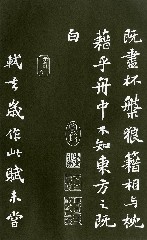 既盡杯槃狼籍相與枕
藉乎舟中不知東方之既
白
軾去歲作此賦未嘗